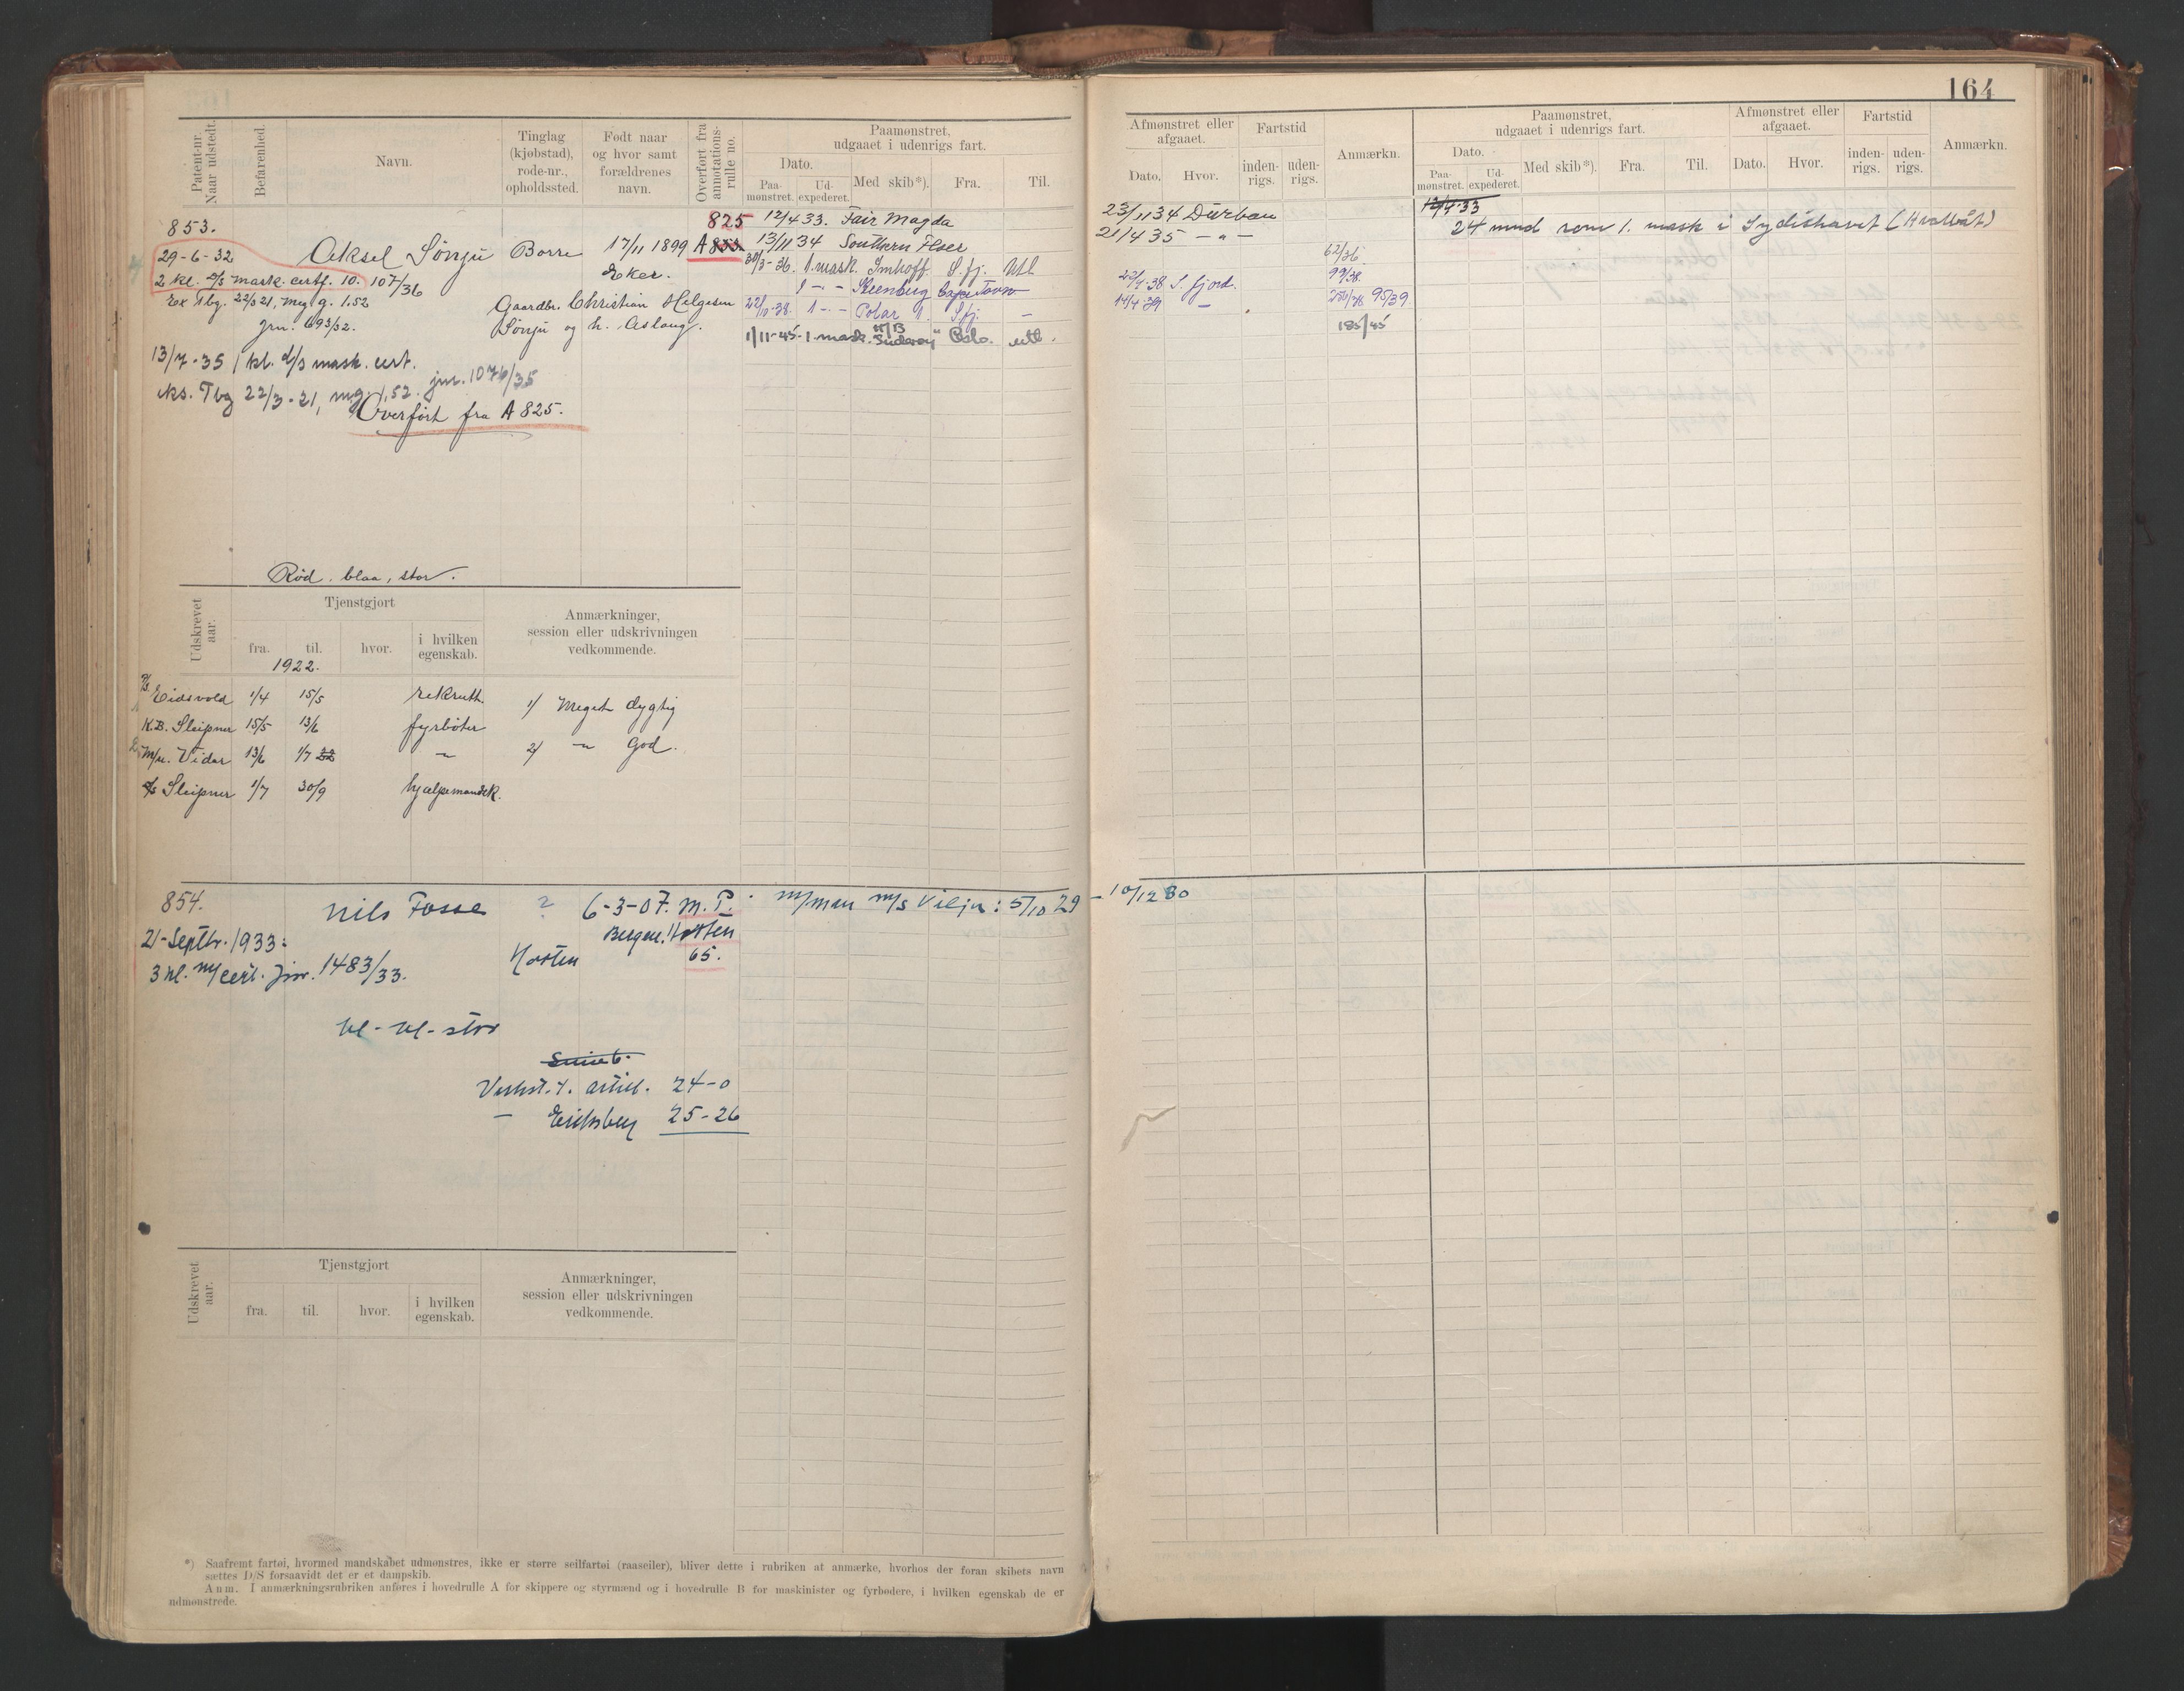 164
Patent-nr. Naar udstedt.
Befarenhed.
Navn.
Tinglag (kjøbstad), rode-nr., opholdssted.
Født naar og hvor samt forældrenes navn.
Overført fra annotations-rulle no.
Paamønstret, udgaaet i udenrigs fart.
Dato.
Paa-mønstret.
Ud-expederet.
Med skib*).
Fra.
Til.
Afmønstret eller afgaaet.
Dato.
Hvor.
Fartstid
inden-rigs.
uden-rigs.
Anmærkn.
Paamønstret, udgaaet i udenrigs fart.
Dato.
Paa-mønstret.
Ud-expederet.
Med skib*).
Fra.
Til.
Afmønstret eller afgaaet.
Dato.
Hvor.
Fartstid
inden-rigs.
uden-rigs.
Anmærkn.
853.
825
12/4 33. Fair Magda
23/11 34 Durban
12/4 33
29-6-32
Aksel Sönju Borre 17/11 1899 A 853.
13/11 34 Southern Flser
21/4 35 - " -
24 mnd som 1. mask i Sydishavet (Hvalbåt)
2 kl. d/s mask. certf. 10. 107/36
Eker.
30/3-36. 1. mask. Imhoff. S.fj. Utl
62/36.
Ex Tbg. 22/3 21, meg g. 1.52
Gaardbr. Christian Helgesen
1 - " - Steenberg Cape Town
22/4-38 S. fjord.
99/38.
Jrn. 693/32.
Sönju og h. Aslaug.
22/10-38. 1 - " - Polar 1. Sfj. -
14/4 39 -
256/38 95/39.
1/11-45. 1. mask. H/B Suderøy " Oslo. utl.
185/45
13/7-35 1 kl. d/s mask. cert.
eks. Tbg 22/3-21, mg. 1,52. jnr. 1076/35
Overført fra A 825.
Rød, blaa, stor.
Udskrevet aar.
Tjenstgjort
fra.
til.
hvor.
i hvilken egenskab.
Anmærkninger, session eller udskrivningen vedkommende.
1922.
P/s. Eidsvold 1/4 15/5 rekruth. 1/ Meget dygtig
K.B. Sleipner 15/5 13/6 fyrböter
M/u. Vidar 13/6 1/7 22 - " - 2/ - " - God.
Sleipner 1/7 30/9 hjælpemandsk.
854.
Nils Fosse ? 6-3-07. M.P. m/man m/s Vilja: 5/10 29 - 10/12 30
21-Septbr. 1933:
Bergen. Horten
3 kl. m/cert. Jnr. 1483/33.
Horten 65.
bl - bl - stor
Verkst. f. artill. 24-0
- Eriksberg 25-26
Udskrevet aar.
Tjenstgjort
fra.
til.
hvor.
i hvilken egenskab.
Anmærkninger, session eller udskrivningen vedkommende.
*) Saafremt fartøi, hvormed mandskabet udmønstres, ikke er større seilfartøi (raaseiler), bliver dette i rubriken at anmærke, hvorhos der foran skibets navn
sættes D/S forsaavidt det er et dampskib.
Anm. I anmærkningsrubriken anføres i hovedrulle A for skippere og styrmænd og i hovedrulle B for maskinister og fyrbødere, i hvilken egenskab de er
udmønstrede.